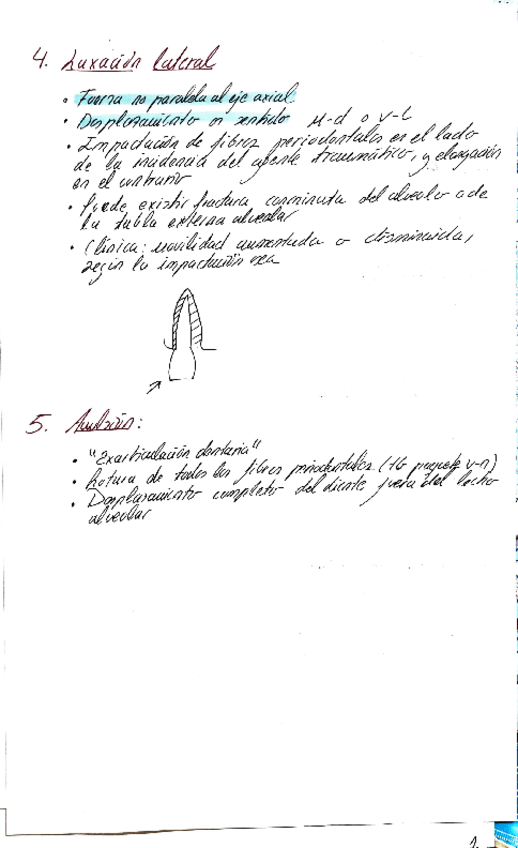 4. Luxación lateral
• Fuerza no paralela al eje axial
• Desplazamiento en sentido M-d o v-L
• Impactación de fibras periodontales en el lado
de la incidencia del agente traumático, y elongación
en el contrario
• Puede existir fractura conminuta del alveolo o de
la tabla externa alveolar
• Clínica: movilidad aumentada o disminuida,
según la impactación ósea
5. Avulsión:
• "Exarticulación dentaria"
• Rotura de todas las fibras periodontales (TG paquete v-n)
• Desplazamiento completo del diente fuera del lecho
alveolar